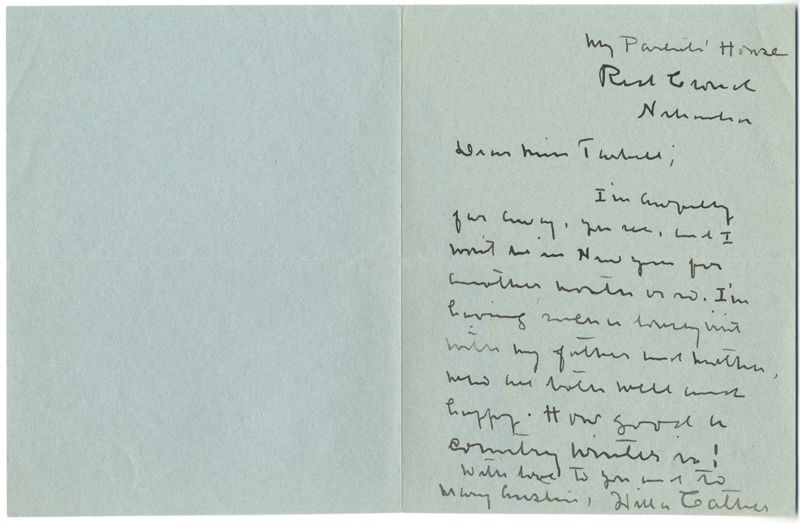 My Parents' House
Red Cloud
Nebraska
Dear Miss Tarbell;
I'm awfully
far away, you see, and I
won't be in New York for
another month or so. I'm
having such a lovely visit
with my father and mother,
who are both well and
happy. How good a
country winter is!
With love to you and to
Mary Austin, Willa Cather